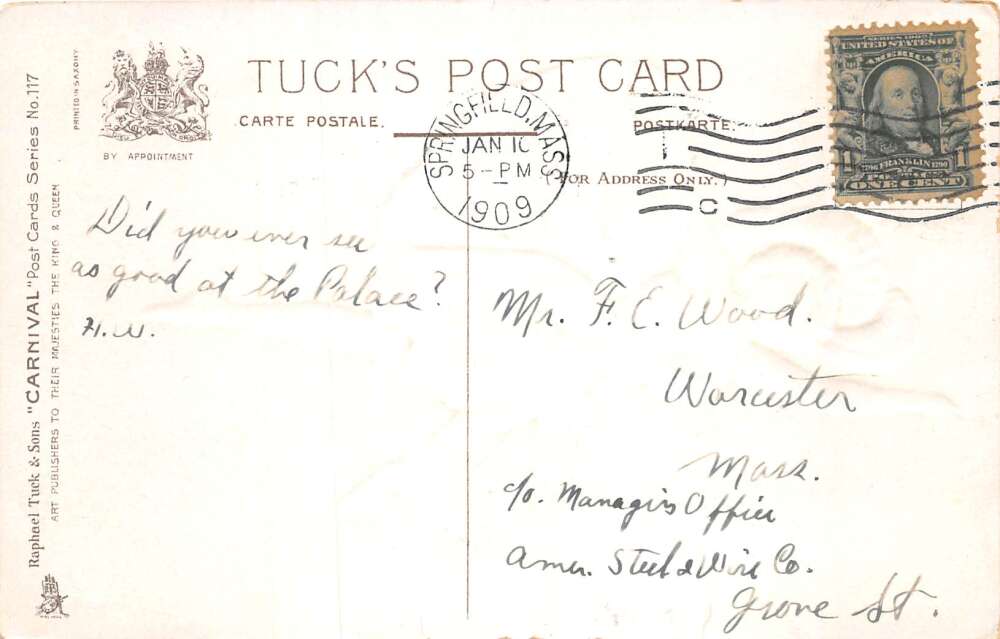 TUCK'S POST CARD
CARTE POSTALE.
POSTKARTE.
(FOR ADDRESS ONLY.)
BY APPOINTMENT
PRINTED IN SAXONY
Raphael Tuck & Sons "CARNIVAL" Post Cards Series No. 117
ART PUBLISHERS TO THEIR MAJESTIES THE KING & QUEEN
SPRINGFIELD, MASS.
JAN 10
5-PM
1909
C
SERIES 1902
UNITED STATES OF
AMERICA
1706 FRANKLIN 1790
1 1
ONE CENT
Did you ever see
as good at the Palace?
H.W.
Mr. F. E. Wood.
Worcester
Mass.
c/o. Managers Office
Amer. Steel & Wire Co.
Grove St.